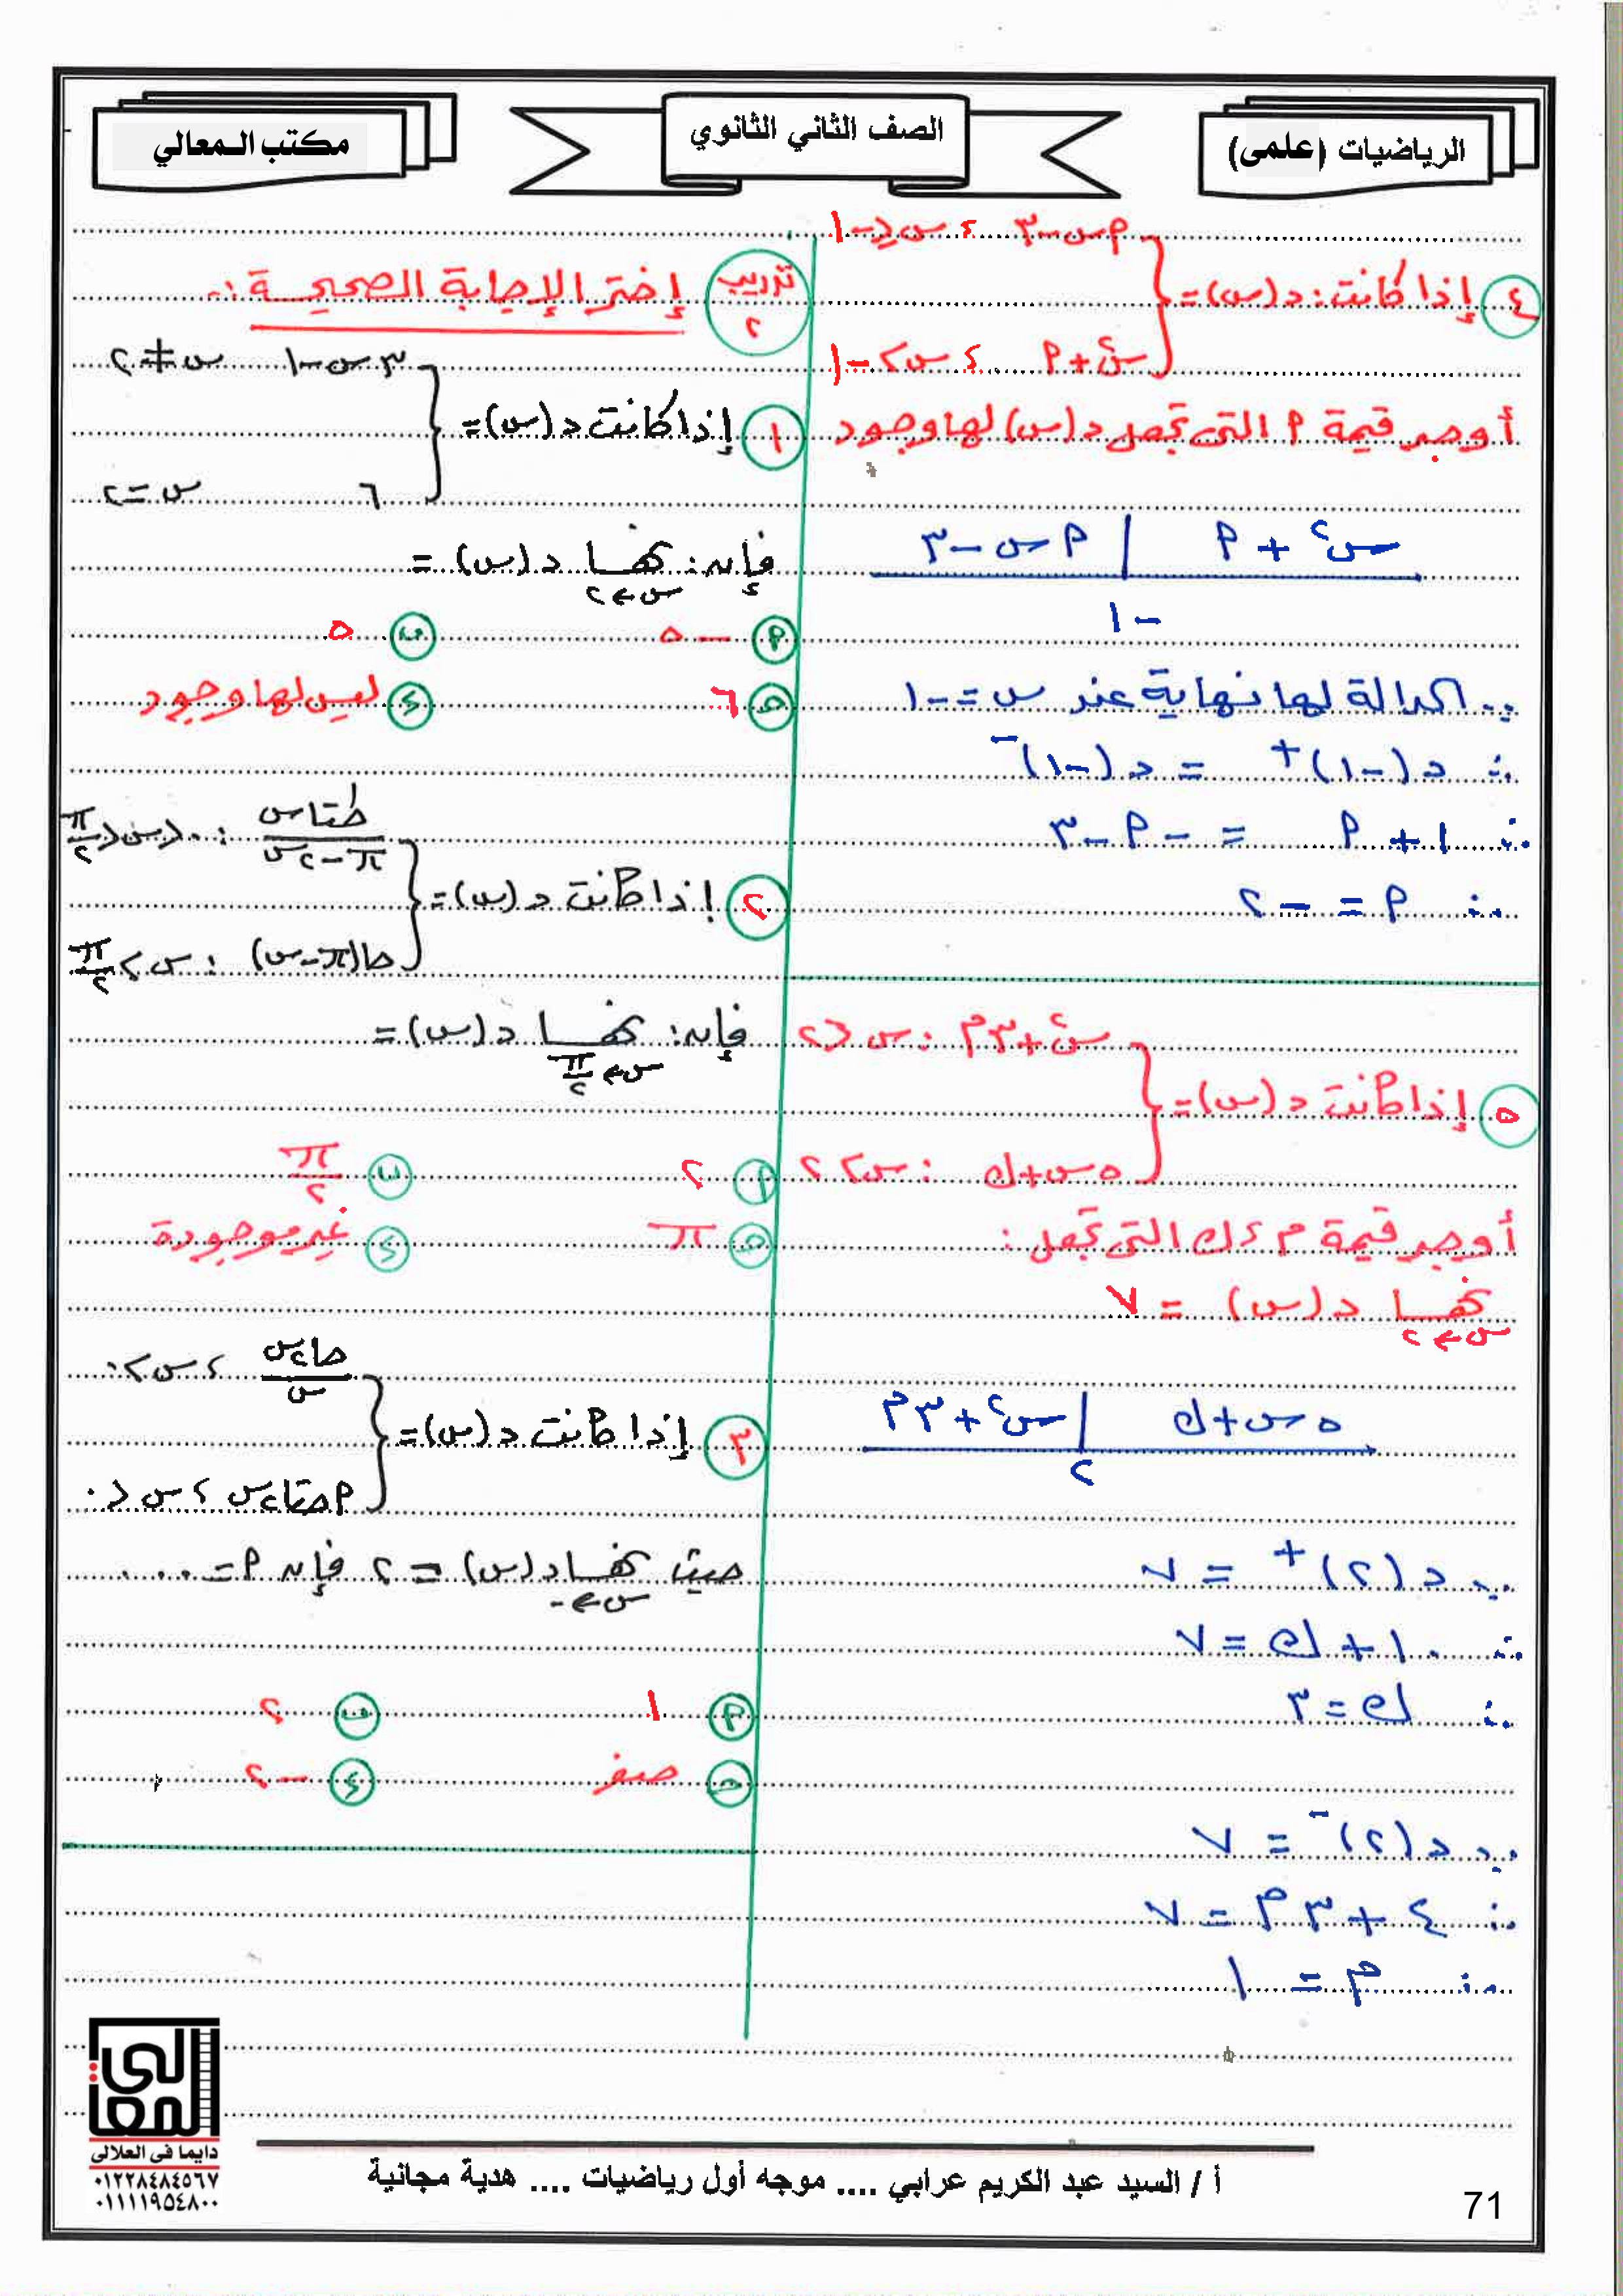 الرياضيات (علمى)
الصف الثاني الثانوي
مكتب المعالي
٤ إذا كانت : د(س) = { م س - ٣ ، س < -١
س٢ + م ، س > -١
أوجد قيمة م التى تجعل د(س) لها وجود
س٢ + م | م س - ٣
-١
∵ الدالة لها نهاية عند س = -١
∴ د(-١)+ = د(-١)-
∴ ١ + م = -م - ٣
∴ م = -٢
٥ إذا كانت د(س) = { س٢ + ٣م : س < ٢
٥س + ك : س > ٢
أوجد قيمة م ، ك التى تجعل :
نهــا د(س) = ٧
س ← ٢
٥س + ك | س٢ + ٣م
٢
∵ د(٢)+ = ٧
∴ ١٠ + ك = ٧
∴ ك = ٣
∵ د(٢)- = ٧
∴ ٤ + ٣م = ٧
∴ م = ١
تدريب ٢ إختر الإجابة الصحيحة :-
١ إذا كانت د(س) = { ٣س - ١ س ≠ ٢
٦ س = ٢
فإنه : نهــا د(س) =
س ← ٢
م -٥ ب ٥
ج ٦ د ليس لها وجود
٢ إذا كانت د(س) = { طتاس / π - ٢س : ٠ < س < π/٢
حا(π - س) : س > π/٢
فإنه : نهــا د(س) =
س ← π/٢
م ٢ ب π/٢
ج π د غير موجودة
٣ إذا كانت د(س) = { حا٢س / س ، س > ٠
م حتا٢س ، س < ٠
حيث نهــا د(س) = ٢ فإنه م = ....
س ← ٠
م ١ ب ٢
ج صفر د -٢
المعالى
دايما فى العلالى
٠١٢٢٨٤٨٤٥٦٧
٠١١١١٩٥٤٨٠٠
أ / السيد عبد الكريم عرابي .... موجه أول رياضيات .... هدية مجانية
71